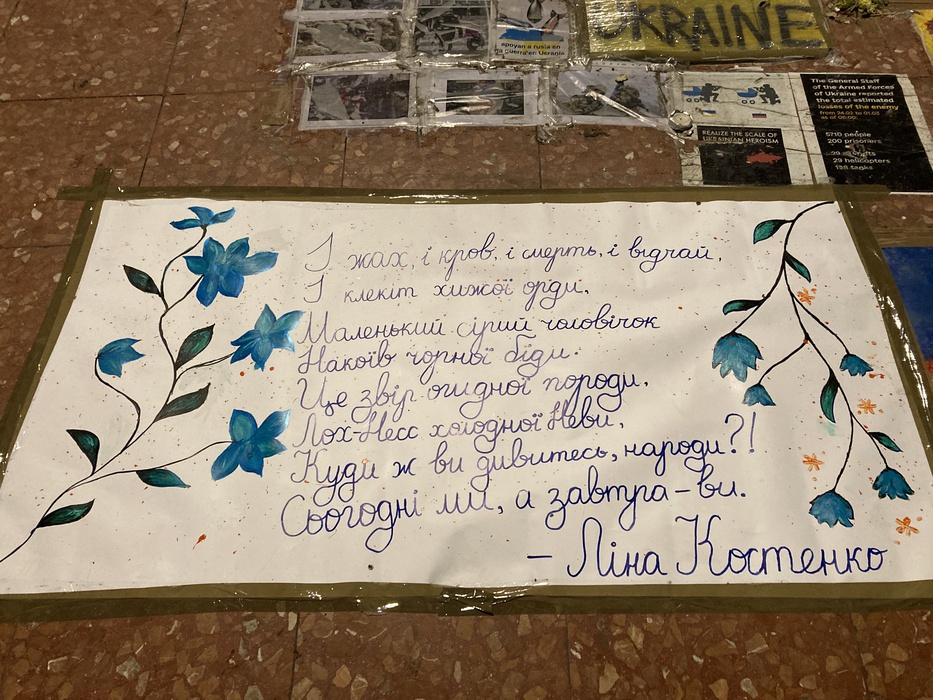 apoyan a rusia en
la guerra en Ucrania
UKRAINE
The General Staff
of the Armed Forces
of Ukraine reported
the total estimated
losses of the enemy
from 24.02 to 01.03
5710 people
200 prisoners
29 helicopters
198 tanks
REALIZE THE SCALE OF
UKRAINIAN HEROISM
І жах, і кров, і смерть, і відчай,
І клекіт хижої орди,
Маленький сірий чоловічок
Накоїв чорної біди.
Це звір огидної породи,
Лох-Несс холодної Неви,
Куди ж ви дивитесь, народи?!
Сьогодні ми, а завтра - ви.
- Ліна Костенко